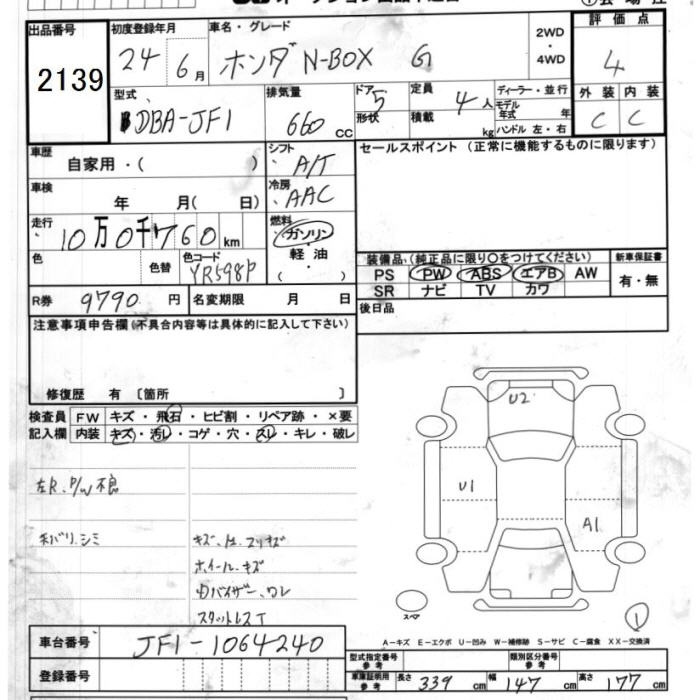 出品番号 初度登録年月 車名・グレード 2WD ・ 4WD 評価点
2139 24 6月 ホンダ N-BOX G 4
型式 排気量 ドア 5 定員 4人 ディーラー・並行 外装 内装
DBA-JF1 660 cc 形状 積載 kg モデル年式 年 C C
ハンドル 左・右
車歴 自家用・( ) シフト A/T セールスポイント (正常に機能するものに限ります)
車検 年 月( 日) 冷房 AAC
走行 10万0千760km 燃料 ガソリン
軽油
色 色替 色コード YR598P 装備品(純正品に限り〇をつけてください) 新車保証書
PS PW ABS エアB AW 有・無
SR ナビ TV カワ
R券 9790円 名変期限 月 日 後日品
注意事項申告欄(不具合内容等は具体的に記入して下さい)
修復歴 有〔箇所 〕
検査員 FW キズ・飛石・ヒビ割・リペア跡・×要
記入欄 内装 キズ・汚レ・コゲ・穴・スレ・キレ・破レ
U2
U1
A1
左R.P/W不良
ホイール.キズ
スタットレスT
スペア
①
A-キズ E-エクボ U-凹み W-補修跡 S-サビ C-腐食 XX-交換済
車台番号 JF1-1064240
型式指定番号 参考 類別区分番号 参考
登録番号 車庫証明用 参考 長さ 339 cm 幅 147 cm 高さ 177 cm